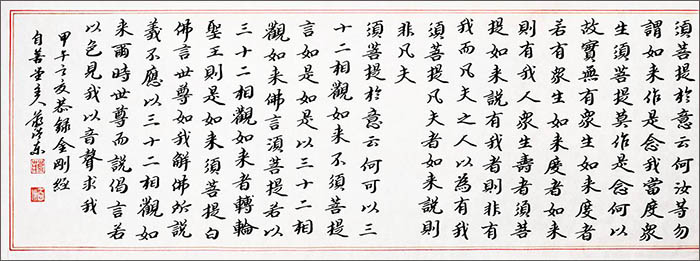 須菩提於意云何汝等勿
謂如来作是念我當度衆
生須菩提莫作是念何以
故實無有衆生如来度者
若有衆生如来度者如来
則有我人衆生壽者須菩
提如来說有我者則非有
我而凡夫之人以為有我
須菩提凡夫者如来說則
非凡夫
須菩提於意云何可以三
十二相觀如来不須菩提
言如是如是以三十二相
觀如来佛言須菩提若以
三十二相觀如来者轉輪
聖王則是如来須菩提白
佛言世尊如我解佛所說
義不應以三十二相觀如
来爾時世尊而說偈言若
以色見我以音聲求我
甲午之夏恭錄金剛經
自善堂主人